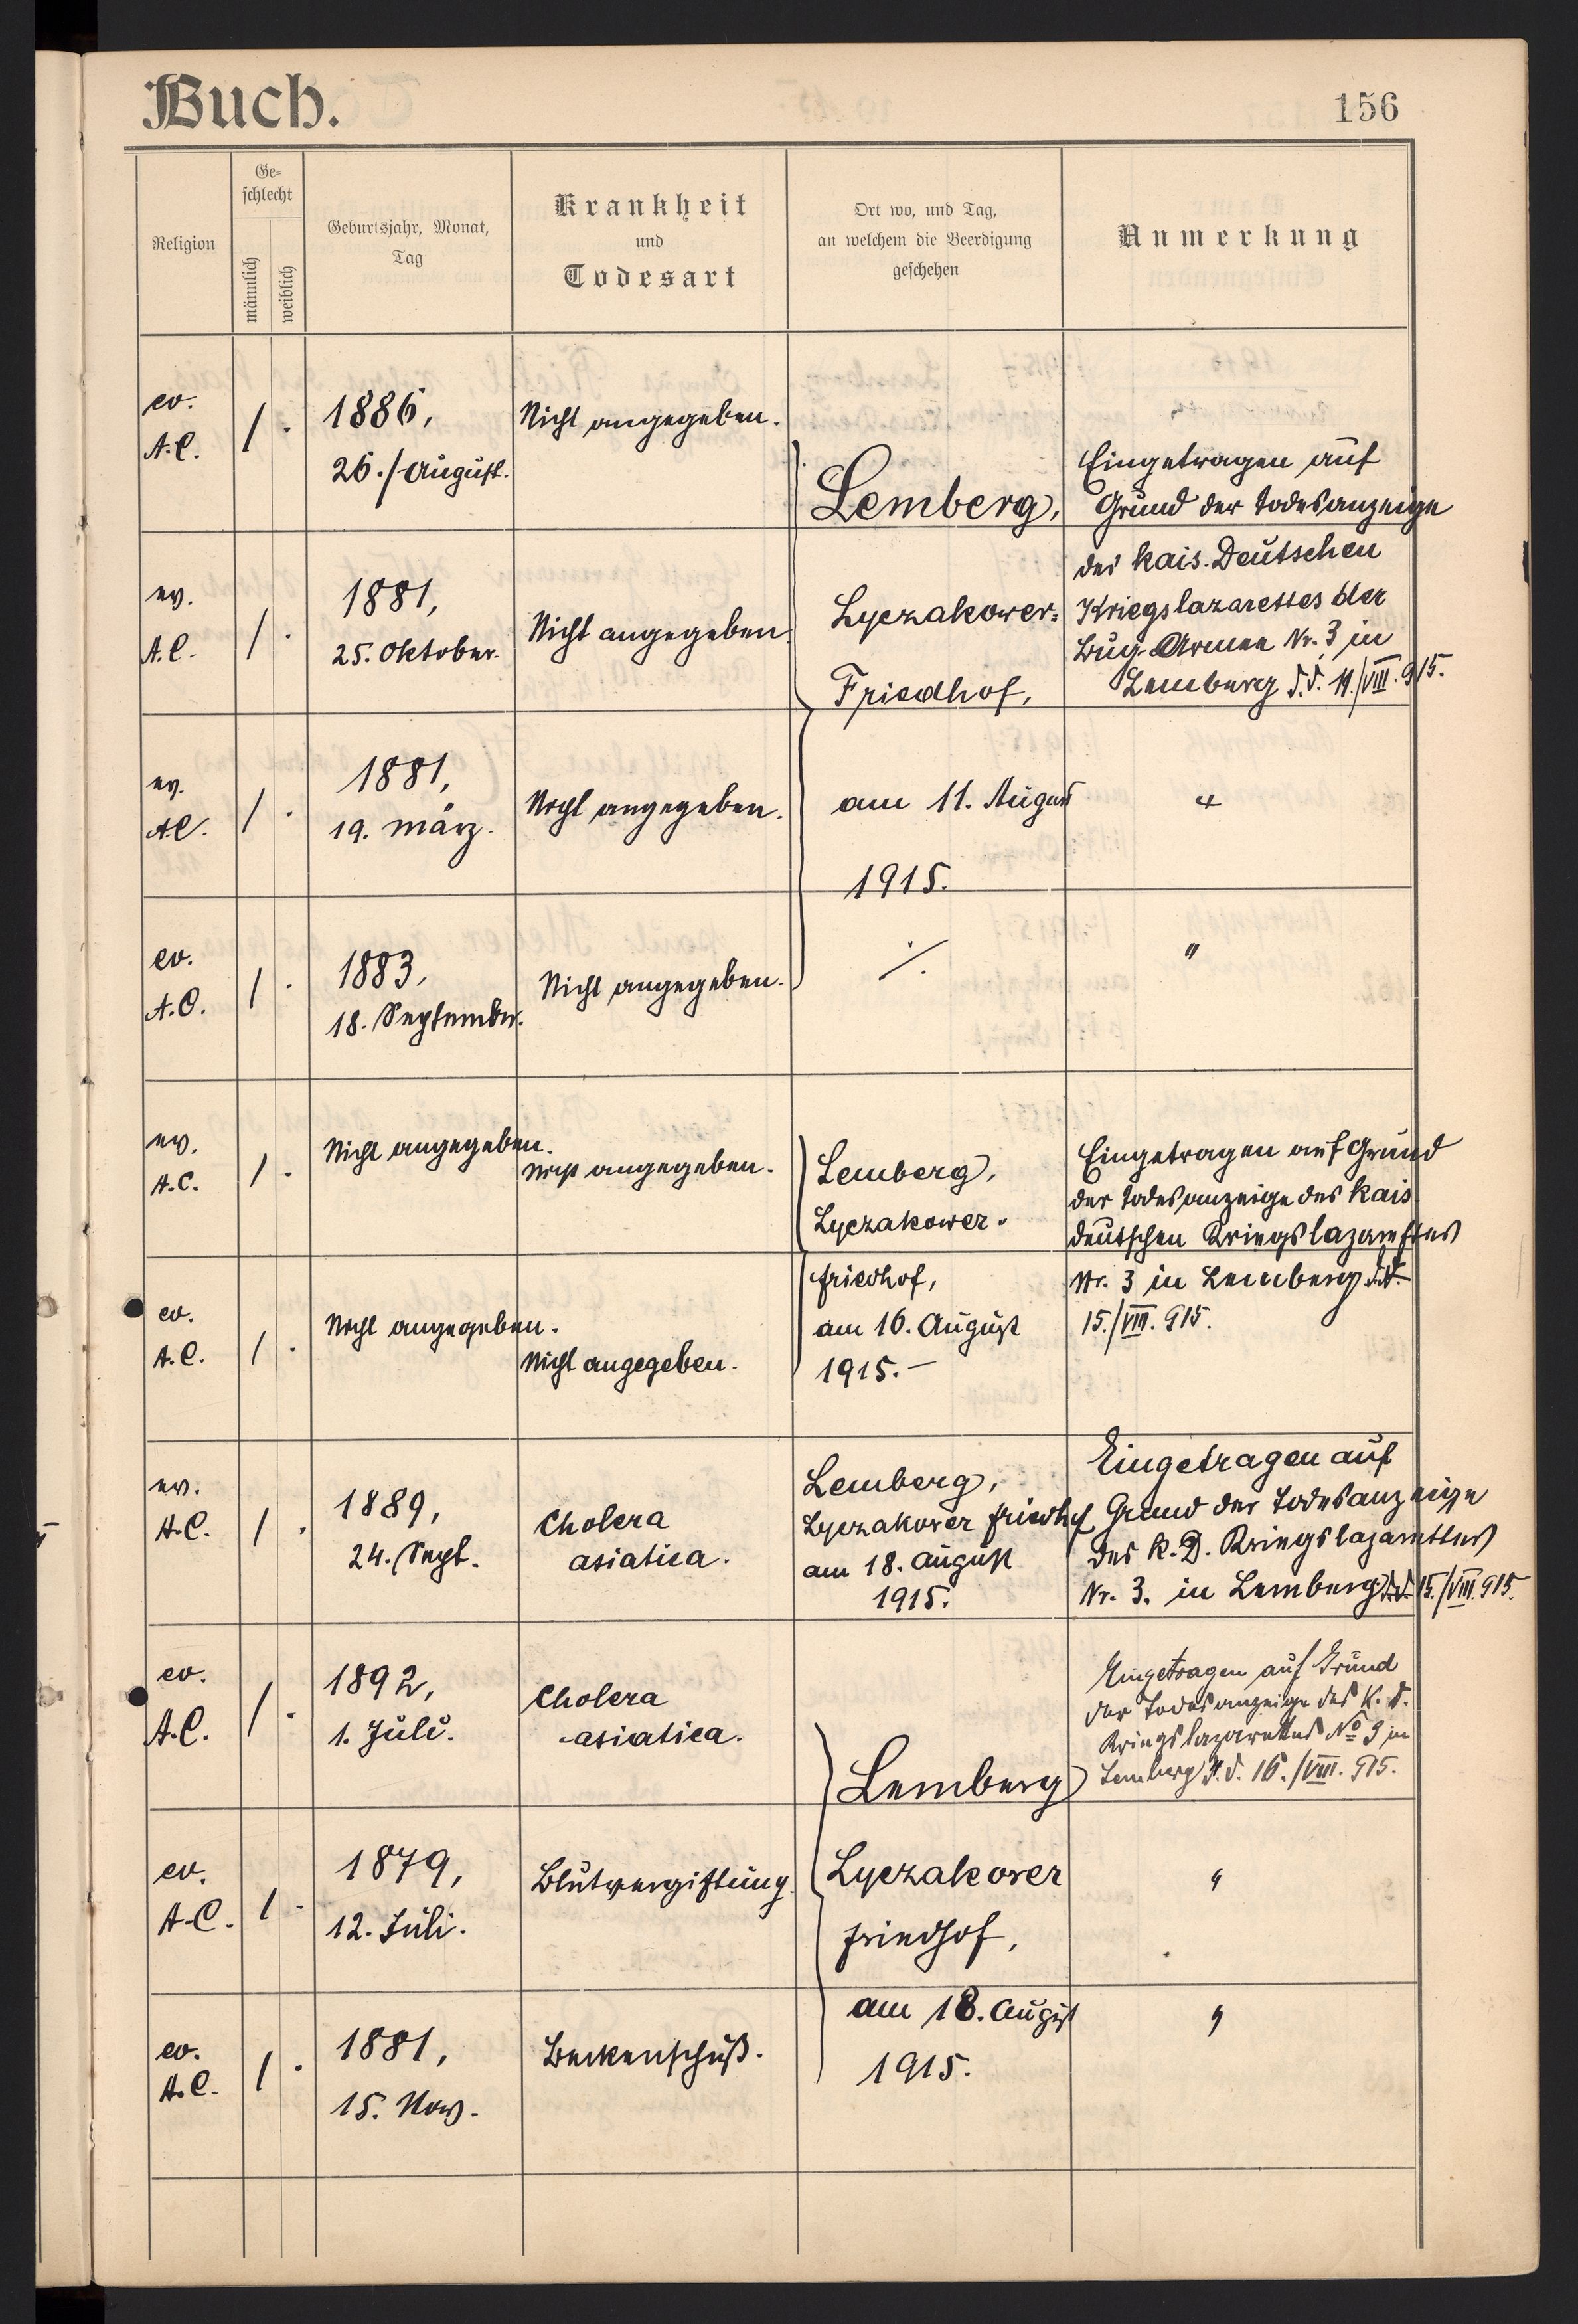 Buch.
156
Religion
Ge-
schlecht
männlich
weiblich
Geburtsjahr, Monat,
Tag
Krankheit
und
Todesart
Ort wo, und Tag,
an welchem die Beerdigung
geschehen
Anmerkung
ev.
A.C.
1 .
1886,
26./August.
Nicht angegeben.
Lemberg,
Eingetragen auf
Grund der Todesanzeige
ev.
A.C.
1 .
1881,
25. Oktober.
Nicht angegeben.
Lyczakower=
Friedhof,
des kais. Deutschen
Kriegslazarettes der
Bug-Armee Nr. 3 in
Lemberg d.d. 11./VIII. 915.
ev.
A.C.
1 .
1881,
19. März.
Nicht angegeben.
am 11. August
1915.
"
ev.
A.C.
1 .
1883,
18. September.
Nicht angegeben.
./.
"
ev.
A.C.
1 .
Nicht angegeben.
Nicht angegeben.
Lemberg,
Lyczakower-
Eingetragen auf Grund
der Todesanzeige des kais.
deutschen Kriegslazarettes
ev.
A.C.
1 .
Nicht angegeben.
Nicht angegeben.
friedhof,
am 16. August
1915.-
Nr. 3 in Lemberg d.d.
15./VIII. 915.
ev.
A.C.
1 .
1889,
24. Sept.
Cholera
asiatica.
Lemberg,
Lyczakover friedhof
am 18. August
1915.
Eingetragen auf
Grund der Todesanzeige
des k. D. Kriegslazarettes
Nr. 3. in Lemberg d.d. 15./VIII. 915.
ev.
A.C.
1 .
1892,
1. Juli.
Cholera
asiatica.
Lemberg
Eingetragen auf Grund
der Todesanzeige des K. d.
Kriegslazarettes No 3 in
Lemberg d.d. 16./VIII. 915.
ev.
A.C.
1 .
1879,
12. Juli.
Blutvergiftung.
Lyczakover
friedhof,
"
ev.
A.C.
1 .
1881,
15. Nov.
Beckenschuß.
am 18. August
1915.
"